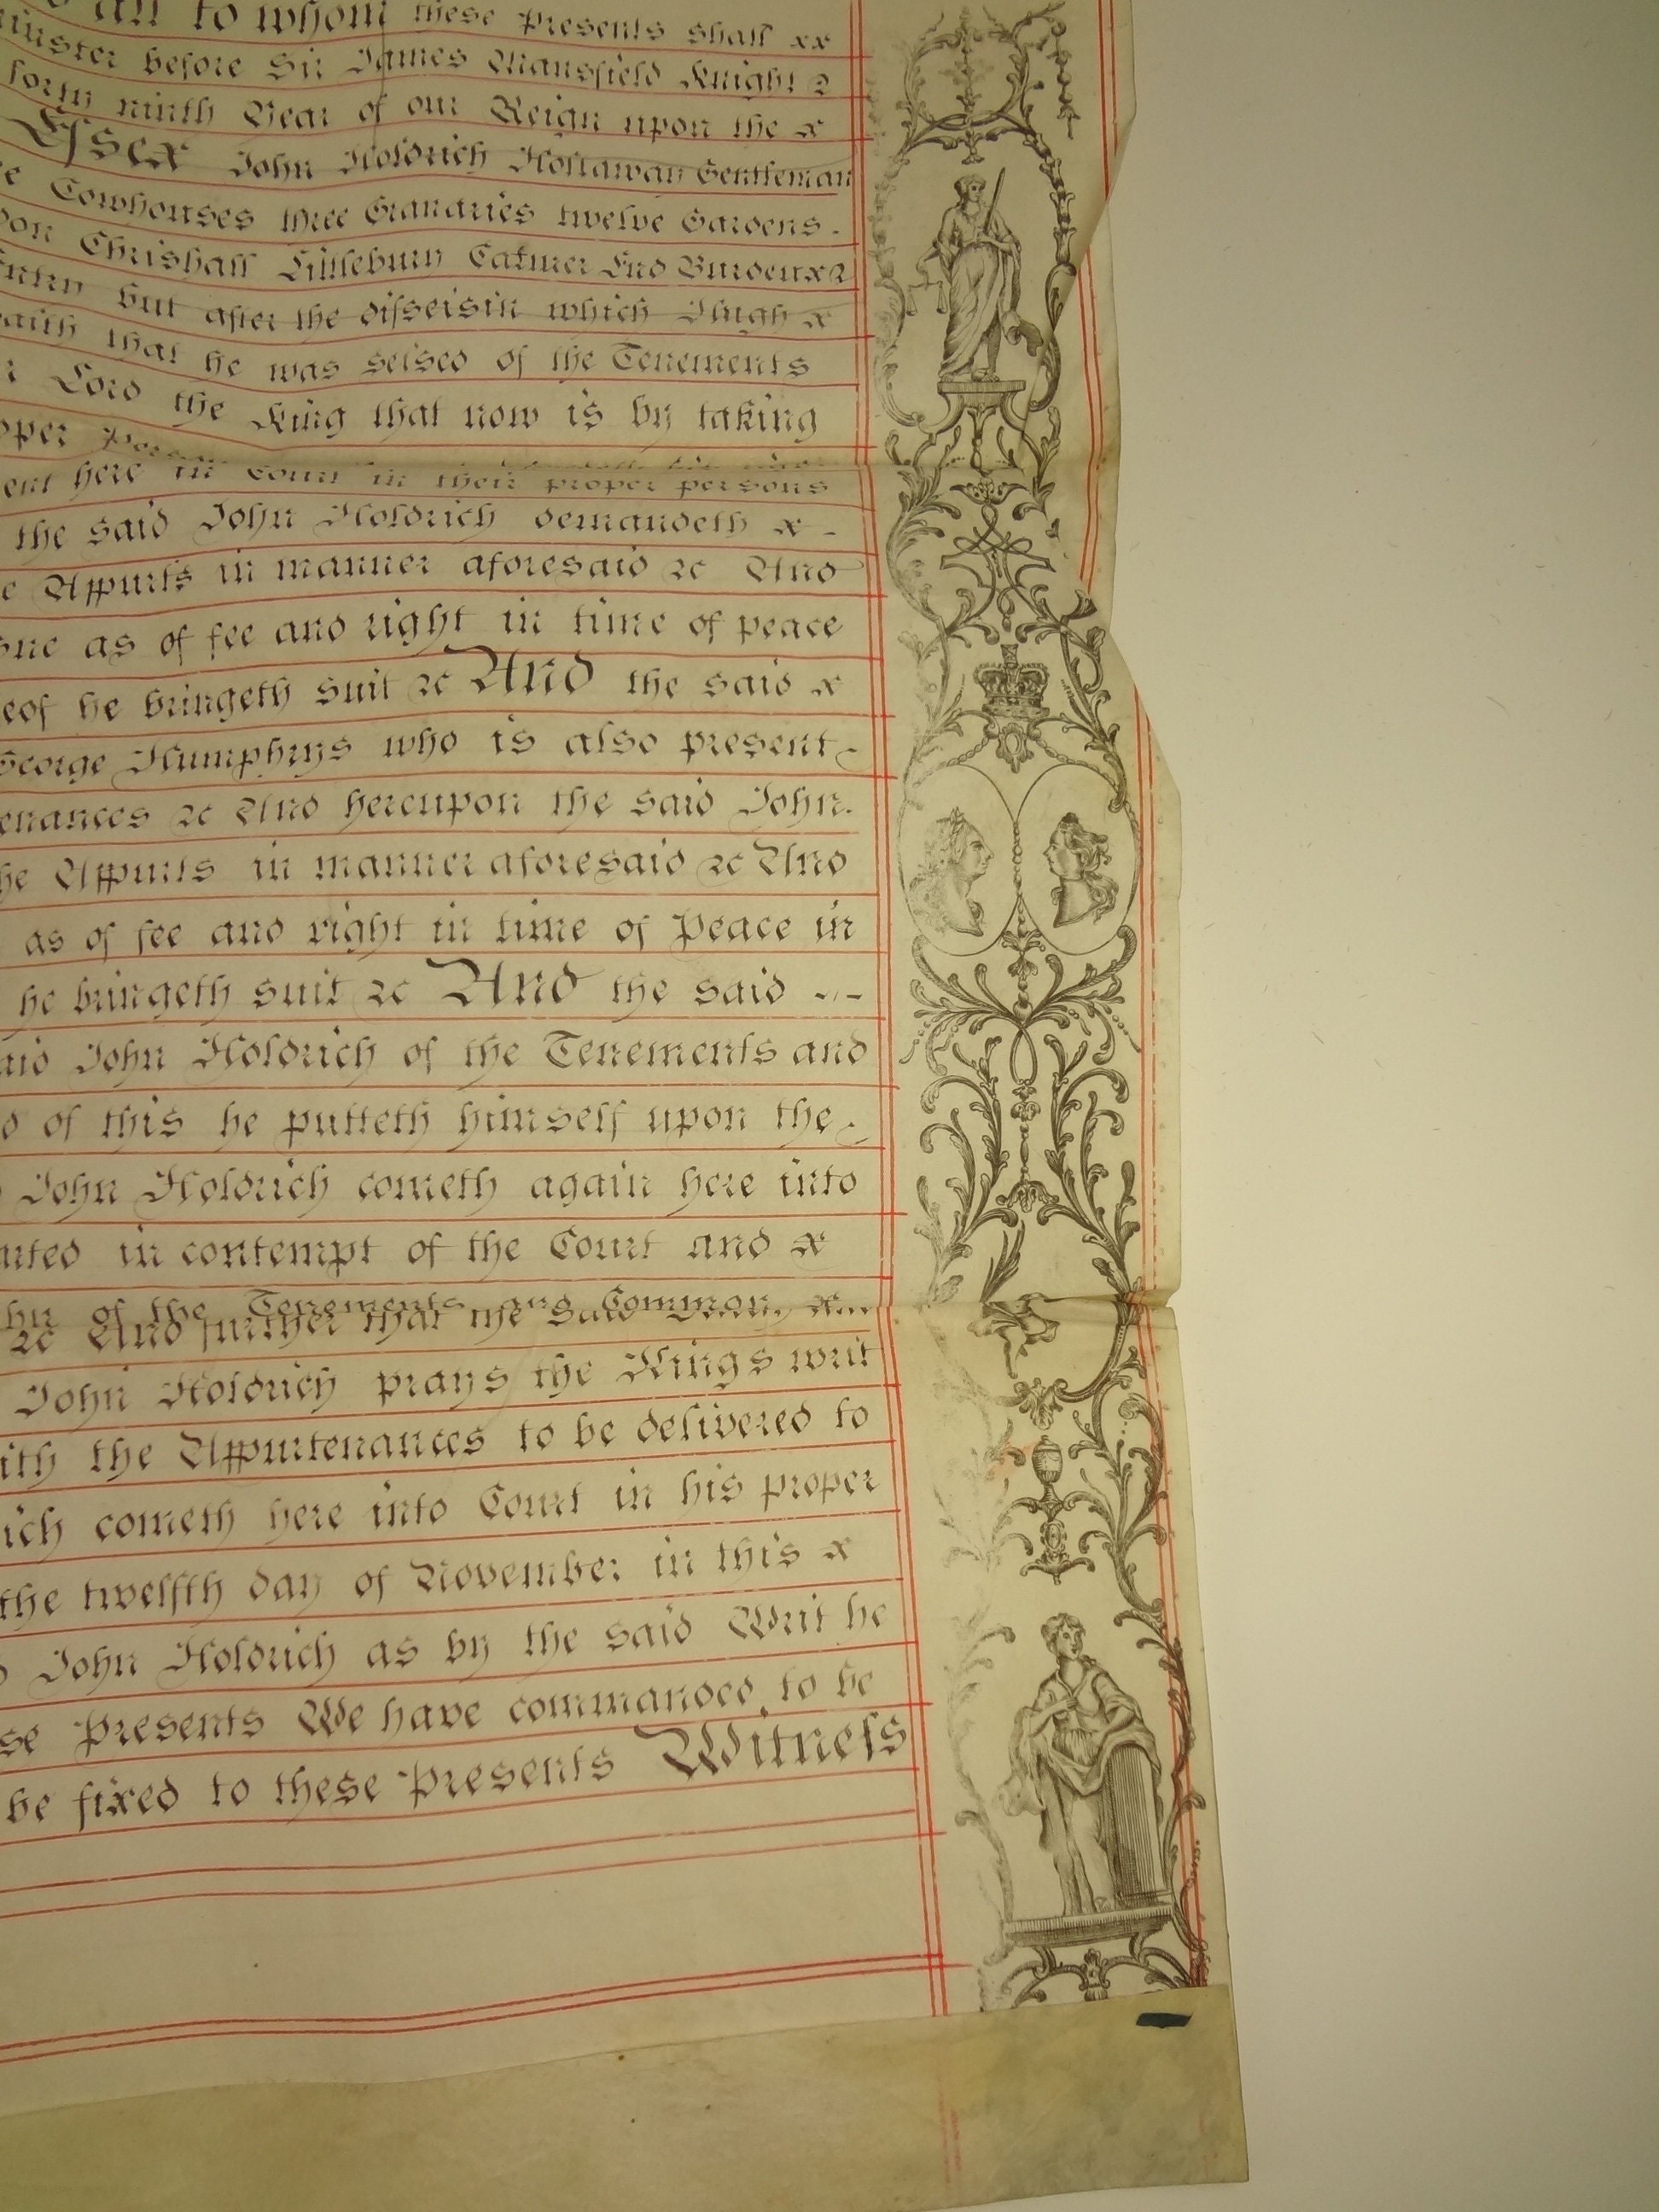 all to whom these Presents shall xx
minster before Sir James Mansfield Knight &
forty ninth Year of our Reign upon the x
Essex John Holdrich Hollawan Gentleman
Cowhouses three Granaries twelve Gardens
Chrishall Littlebury Catmer End Burdeux &
but after the disseisin which Hugh x
that he was seised of the Tenements
Lord the King that now is by taking
oper
ent here in Court in their proper persons
the said John Holdrich demandeth x
Appurts in manner aforesaid &c And
as of fee and right in time of peace
eof he bringeth suit &c And the said x
George Humphrys who is also present
enances &c And hereupon the said John
he Appurts in manner aforesaid &c And
as of fee and right in time of Peace in
he bringeth suit &c And the said
aid John Holdrich of the Tenements and
d of this he putteth himself upon the
John Holdrich cometh again here into
in contempt of the Court and x
of the Tenements and Common
&c And further that the said
John Holdrich prays the Kings writ
ith the Appurtenances to be delivered to
ich cometh here into Court in his proper
the twelfth day of November in this x
John Holdrich as by the said Writ he
se Presents We have commanded to be
be fixed to these Presents Witness